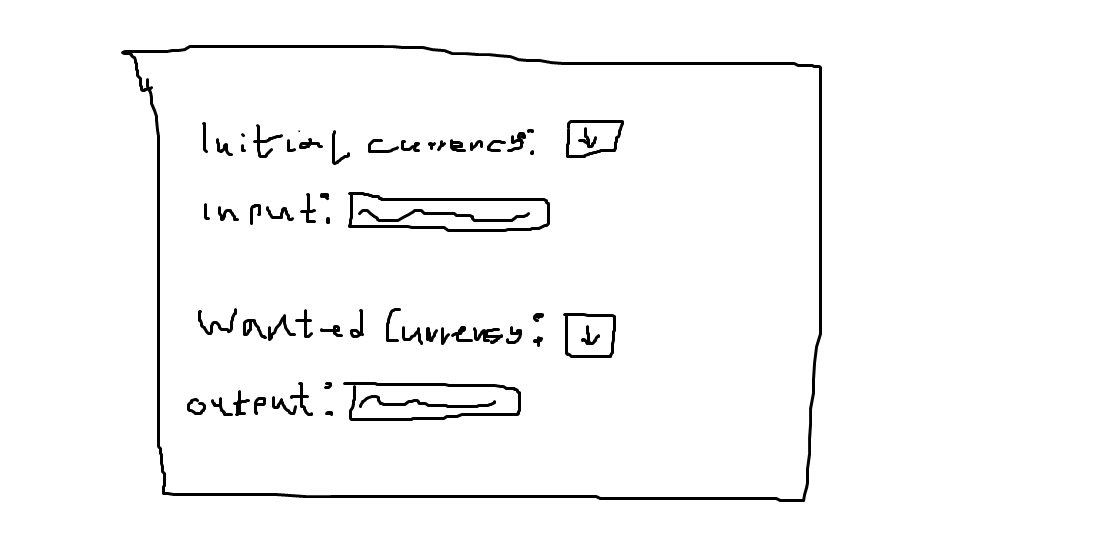 Initial currency:
input:
Wanted Currency:
output: